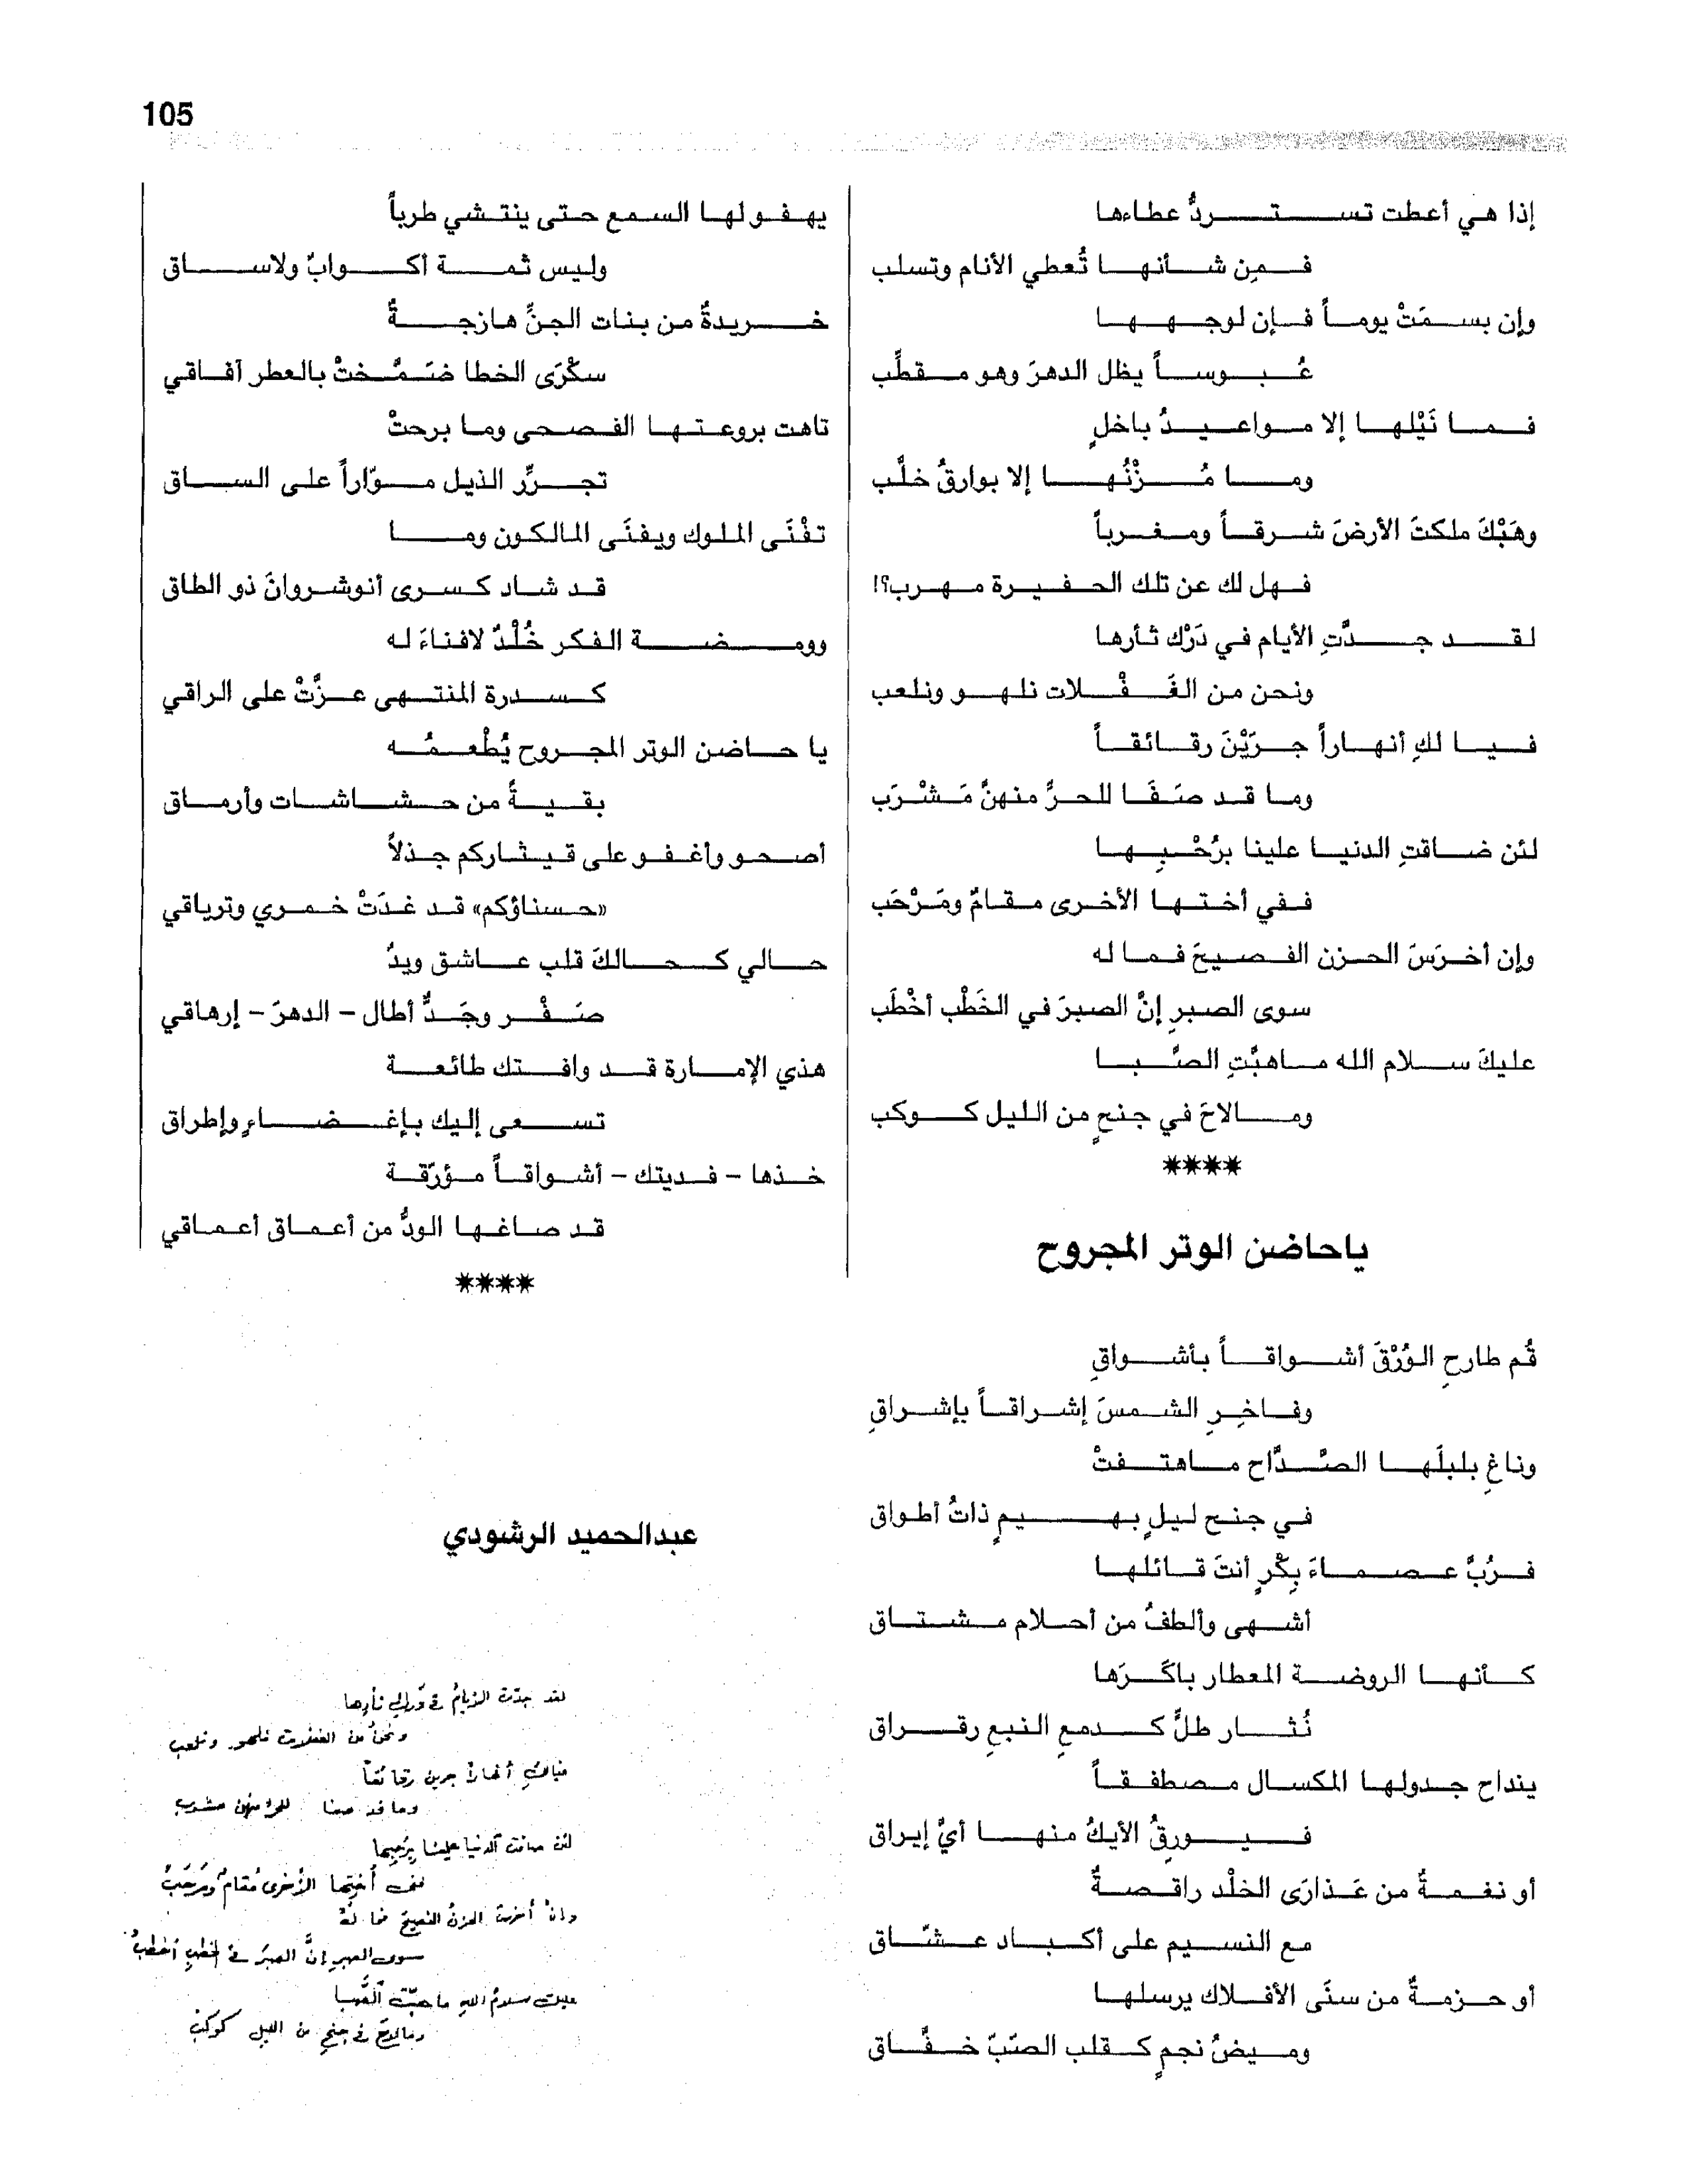 105
إذا هي أعطت تستردُّ عطاءها
فمِن شأنها تُعطي الأنام وتسلب
وإن بسمَتْ يوماً فإن لوجهها
عُبوساً يظل الدهرَ وهو مقطِّب
فما نَيْلها إلا مواعيدُ باخلٍ
وما مُزْنُها إلا بوارقُ خلَّب
وهَبْكَ ملكتَ الأرضَ شرقاً ومغرباً
فهل لك عن تلك الحفيرة مهرب؟!
لقد جدَّتِ الأيام في دَرْك ثأرها
ونحن من الغَفْلات نلهو ونلعب
فيا لكِ أنهاراً جرَيْنَ رقائقاً
وما قد صَفَا للحرِّ منهنَّ مَشْرَب
لئن ضاقتِ الدنيا علينا برُحْبِها
ففي أختها الأخرى مقامٌ ومَرْحَب
وإن أخرَسَ الحزن الفصيحَ فما له
سوى الصبرِ إنَّ الصبرَ في الخَطْب أخْطَب
عليكَ سلام الله ماهبَّتِ الصَّبا
ومالاحَ في جنحٍ من الليل كوكب
****
ياحاضن الوتر المجروح
قُم طارحِ الوُرْقَ أشواقاً بأشواقِ
وفاخِرِ الشمسَ إشراقاً بإشراقِ
وناغِ بلبلَها الصَّدَّاح ماهتفتْ
في جنح ليلٍ بهيمٍ ذاتُ أطواق
فرُبَّ عصماءَ بِكْرٍ أنتَ قائلها
أشهى وألطفُ من أحلام مشتاق
كأنها الروضة المعطار باكَرَها
نُثار طلٍّ كدمعِ النبعِ رقراق
ينداح جدولها المكسال مصطفقاً
فيورِقُ الأيكُ منها أيَّ إيراق
أو نغمةٌ من عَذارَى الخلْد راقصةٌ
مع النسيم على أكباد عشّاق
أو حزمةٌ من سنَى الأفلاك يرسلها
وميضُ نجمٍ كقلب الصّبّ خفَّاق
يهفو لها السمع حتى ينتشي طرباً
وليس ثمة أكوابٌ ولاساق
خريدةٌ من بنات الجنِّ هازجةٌ
سكْرَى الخطا ضَمَّختْ بالعطر آفاقي
تاهت بروعتها الفصحى وما برحتْ
تجرِّر الذيل موّاراً على الساق
تفْنَى الملوك ويفنَى المالكون وما
قد شاد كسرى أنوشروانَ ذو الطاق
وومضة الفكر خُلْدٌ لافناءَ له
كسدرة المنتهى عزَّتْ على الراقي
يا حاضن الوتر المجروح يُطْعمُه
بقيةً من حشاشات وأرماق
أصحو وأغفو على قيثاركم جذلاً
«حسناؤكم» قد غدَتْ خمري وترياقي
حالي كحالكَ قلب عاشق ويدٌ
صَفْر وجَدٌّ أطال – الدهرَ – إرهاقي
هذي الإمارة قد وافتك طائعة
تسعى إليك بإغضاءٍ وإطراق
خذها – فديتك – أشواقاً مؤرّقة
قد صاغها الودُّ من أعماق أعماقي
****
عبدالحميد الرشودي
لقد جدّت الأيامُ في دَرك ثأرها
ونحنُ من الغفلات نلهو ونلعب
فيالكِ أنهاراً جرين رقائقاً
وما قد صفا للحرّ منهن مشرب
لئن ضاقت الدنيا علينا برُحبِها
ففي أختِها الأخرى مُقامٌ ومَرحَبُ
وانْ أخرسَ الحزنُ الفصيحَ فما لهُ
سوى الصبرِ إنَّ الصبرَ في الخطبِ أخطبُ
عليك سلامُ اللهِ ما هبّت الصَّبا
ومالاحَ في جنحٍ من الليل كوكبُ